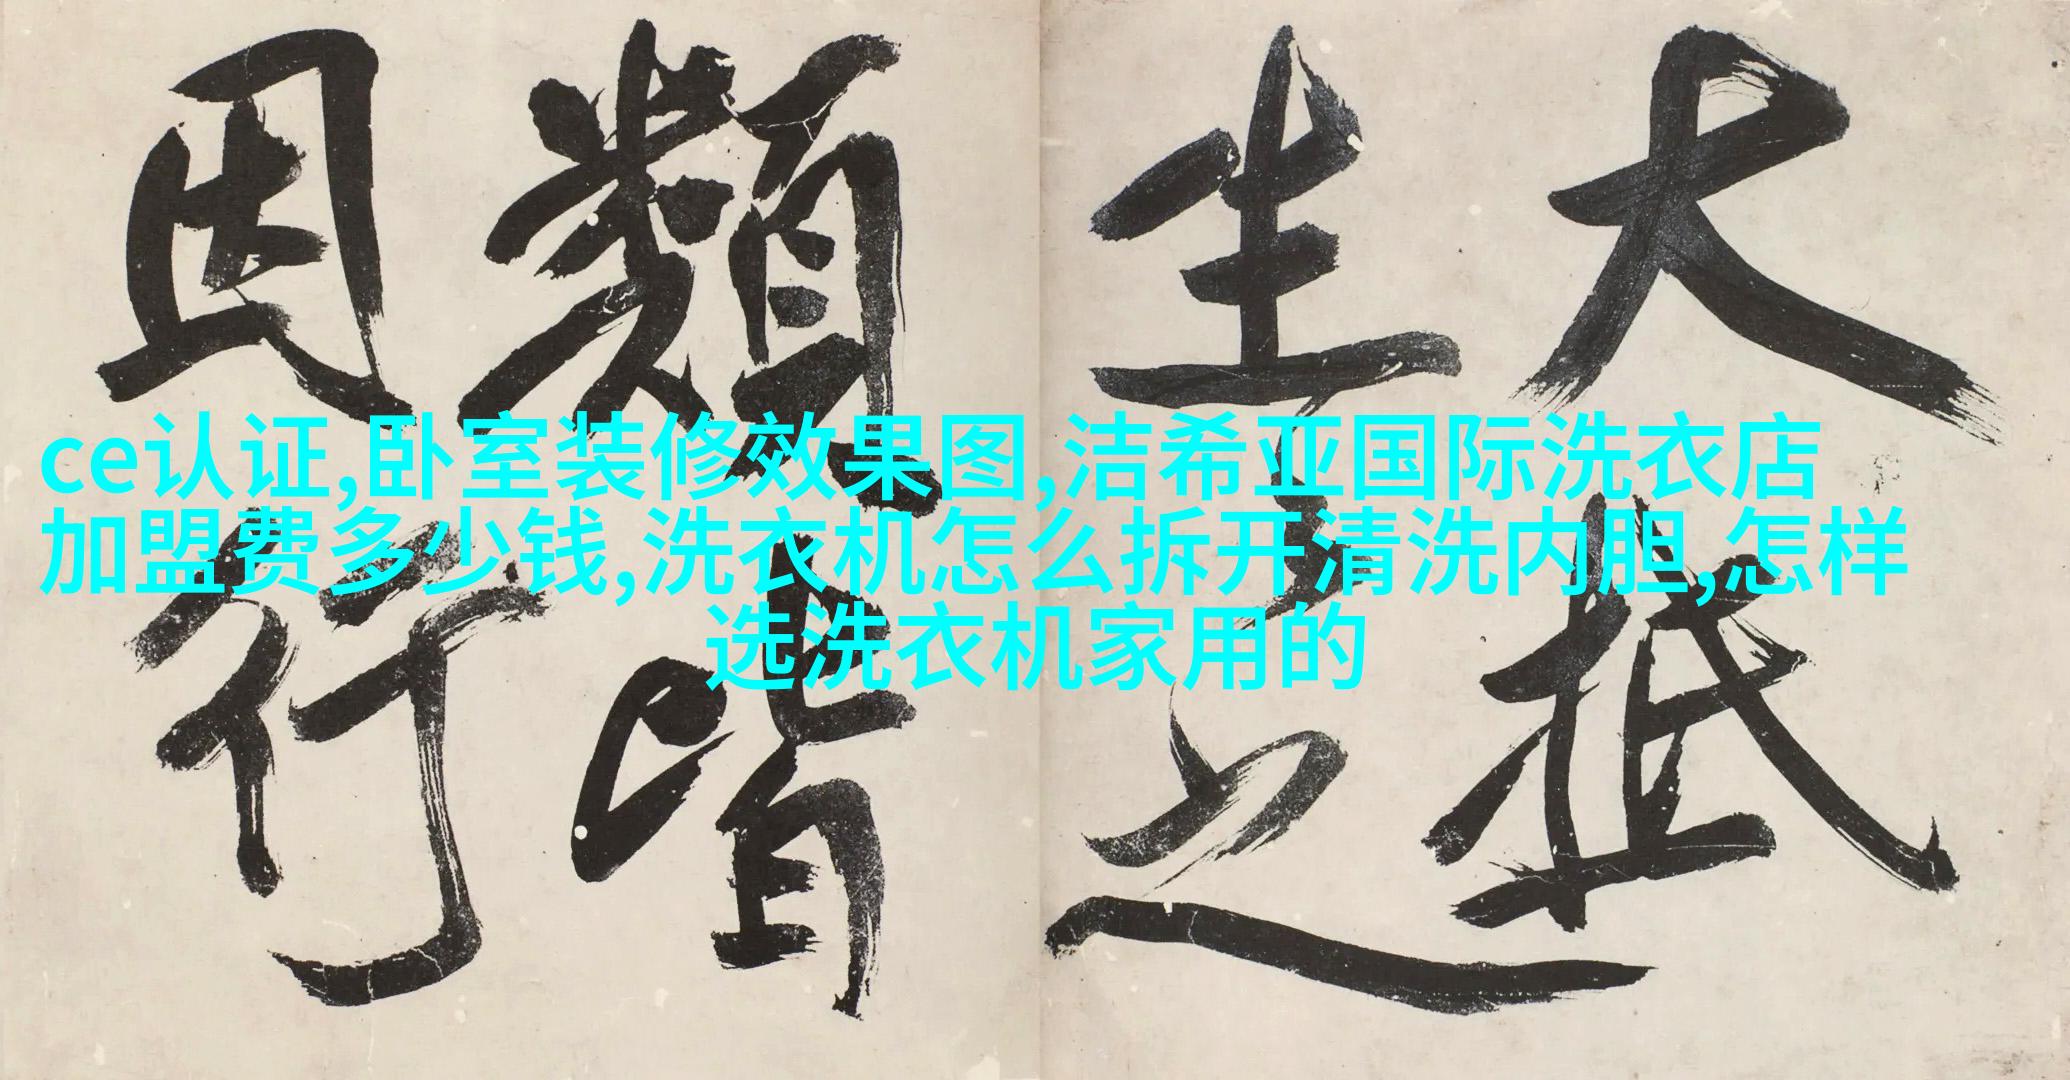 ce认证,卧室装修效果图,洁希亚国际洗衣店
加盟费多少钱,洗衣机怎么拆开清洗内胆,怎样
选洗衣机家用的
大抵
生之
類皆
因行